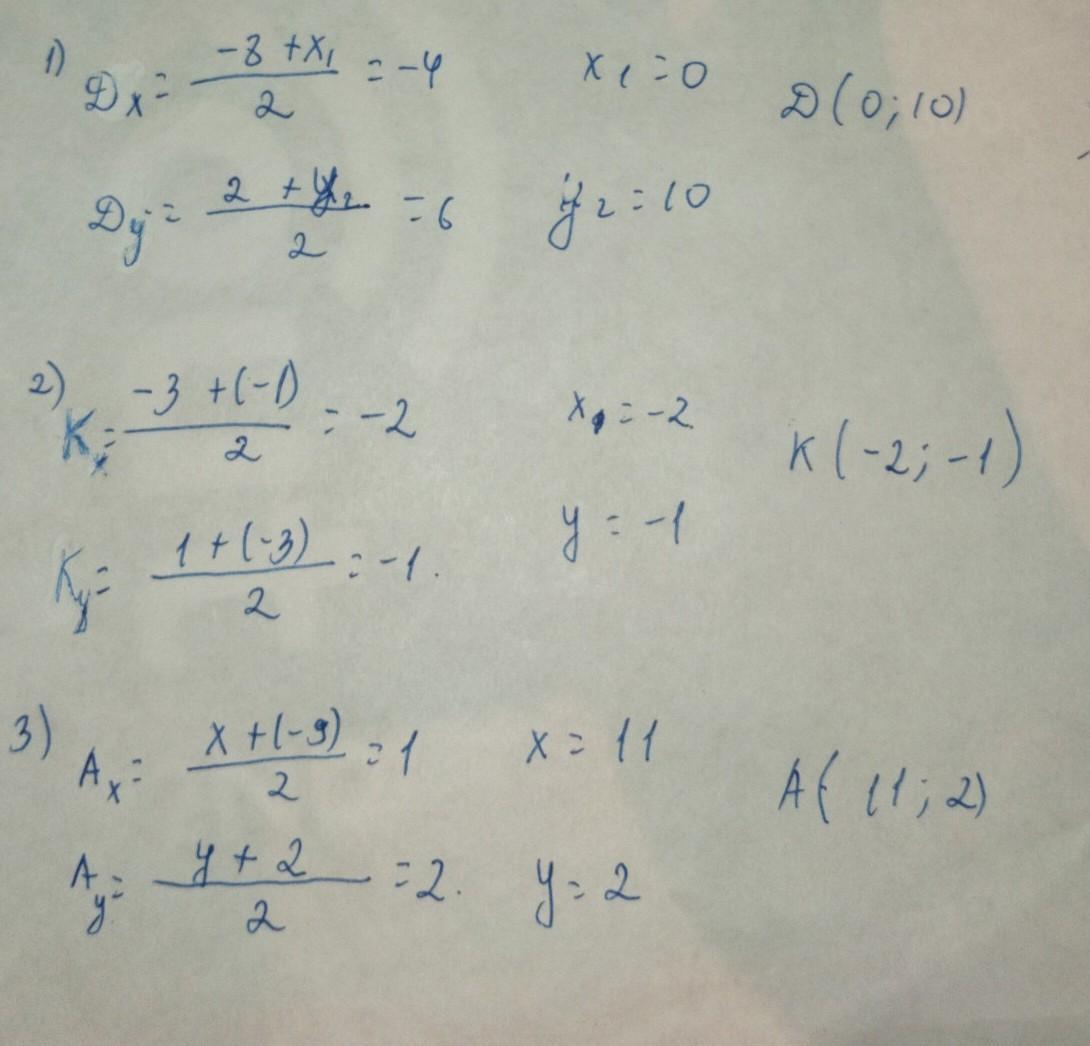 1) Дx = (-8 + x1)/2 = -4 x1 = 0 Д(0; 10)
Дy = (2 + y2)/2 = 6 y2 = 10
2) Kx = (-3 + (-1))/2 = -2 x = -2 K(-2; -1)
Ky = (1 + (-3))/2 = -1. y = -1
3) Ax = (x + (-9))/2 = 1 x = 11 A(11; 2)
Ay = (y + 2)/2 = 2. y = 2